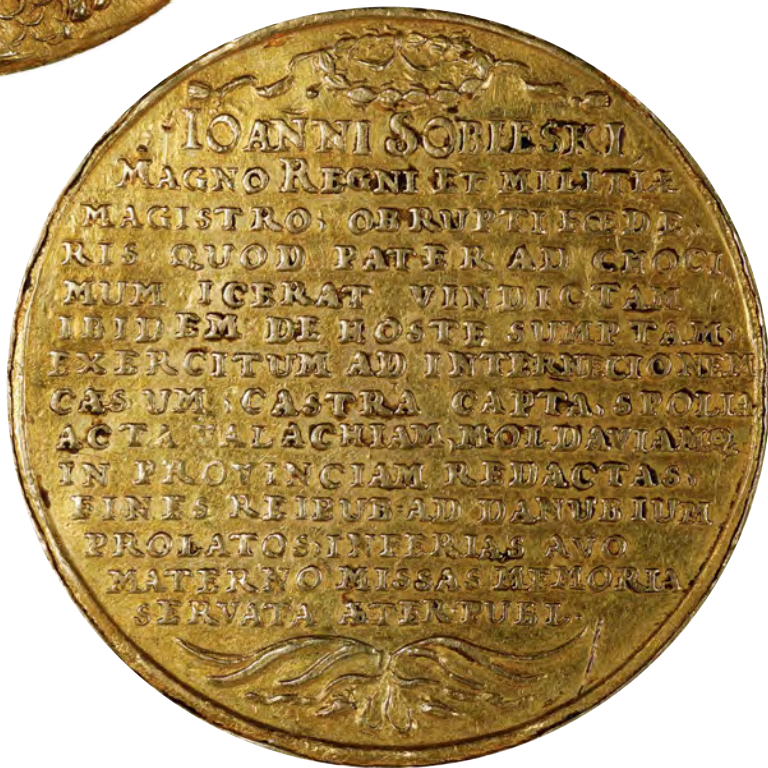 IOANNI SOBIESKI
MAGNO REGNI ET MILITIÆ
MAGISTRO, OBRUPTI FŒDE,
RIS QUOD PATER AD CHOCI
MUM ICERAT VINDICTAM
IBIDEM DE HOSTE SUMPTAM,
EXERCITUM AD INTERNECIONEM
CÆSUM, CASTRA CAPTA, SPOLIA
ACTA VALACHIAM, MOLDAVIAMQ
IN PROVINCIAM REDACTAS,
FINES REIPUB: AD DANUBIUM
PROLATOS: INFERIAS AVO
MATERNO MISSAS MEMORIA
SERVATA ÆTER PUBL.